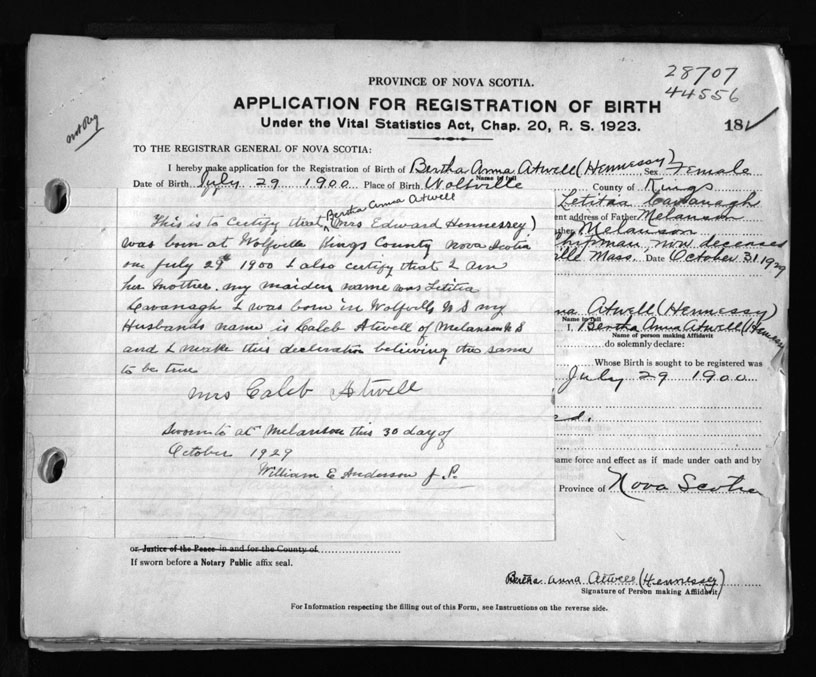 28707
44556
PROVINCE OF NOVA SCOTIA.
APPLICATION FOR REGISTRATION OF BIRTH
Under the Vital Statistics Act, Chap. 20, R. S. 1923.
181
not Reg
TO THE REGISTRAR GENERAL OF NOVA SCOTIA:
I hereby make application for the Registration of Birth of Bertha Anna Atwell (Hennessy) Sex Female
Name in full
Date of Birth July 29 1900 Place of Birth Wolfville County of Kings
Letitia Cavanagh
ent address of Father Melanson
ther Melanson
Chipman, now deceased
ille Mass. Date October 31, 1929
Bertha Anna Atwell
This is to certify that (Mrs Edward Hennessey)
was born at Wolfville Kings County Nova Scotia
on July 29th 1900 I also certify that I am
her Mother. my maiden name was Letitia
Cavanagh I was born in Wolfville N S my
Husbands name is Caleb Atwell of Melanson N S
and I make this declaration believing the same
to be true
Mrs Caleb Atwell
Sworn to at Melanson this 30 day of
October 1929
William E Anderson J. P.
na Atwell (Hennessy)
Name in full
I, Bertha Anna Atwell (Hennessy
Name of person making Affidavit
do solemnly declare:
Whose Birth is sought to be registered was
July 29 1900
ed.
ame force and effect as if made under oath and by
Province of Nova Scotia
or Justice of the Peace in and for the County of
If sworn before a Notary Public affix seal.
Bertha Anna Atwell (Hennessy)
Signature of Person making Affidavit
For Information respecting the filling out of this Form, see Instructions on the reverse side.